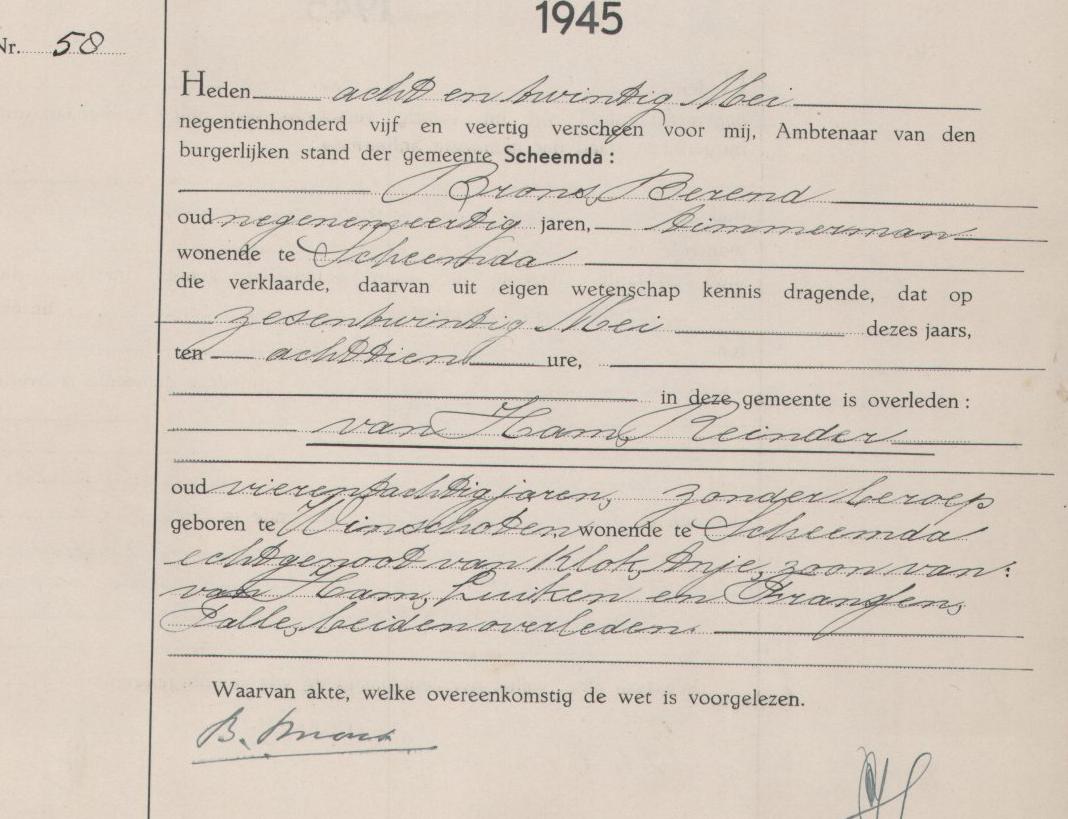 1945
Nr. 58
Heden acht en twintig Mei
negentienhonderd vijf en veertig verscheen voor mij, Ambtenaar van den
burgerlijken stand der gemeente Scheemda:
Brons, Berend
oud negenenveertig jaren, timmerman
wonende te Scheemda
die verklaarde, daarvan uit eigen wetenschap kennis dragende, dat op
zesentwintig Mei dezes jaars,
ten achttien ure,
in deze gemeente is overleden:
van Ham, Reinder
oud vierentachtig jaren, zonder beroep
geboren te Winschoten wonende te Scheemda
echtgenoot van Klok, Anje, zoon van:
van Ham, Luiken en Fransen,
beiden overleden.
Waarvan akte, welke overeenkomstig de wet is voorgelezen.
B. Brons